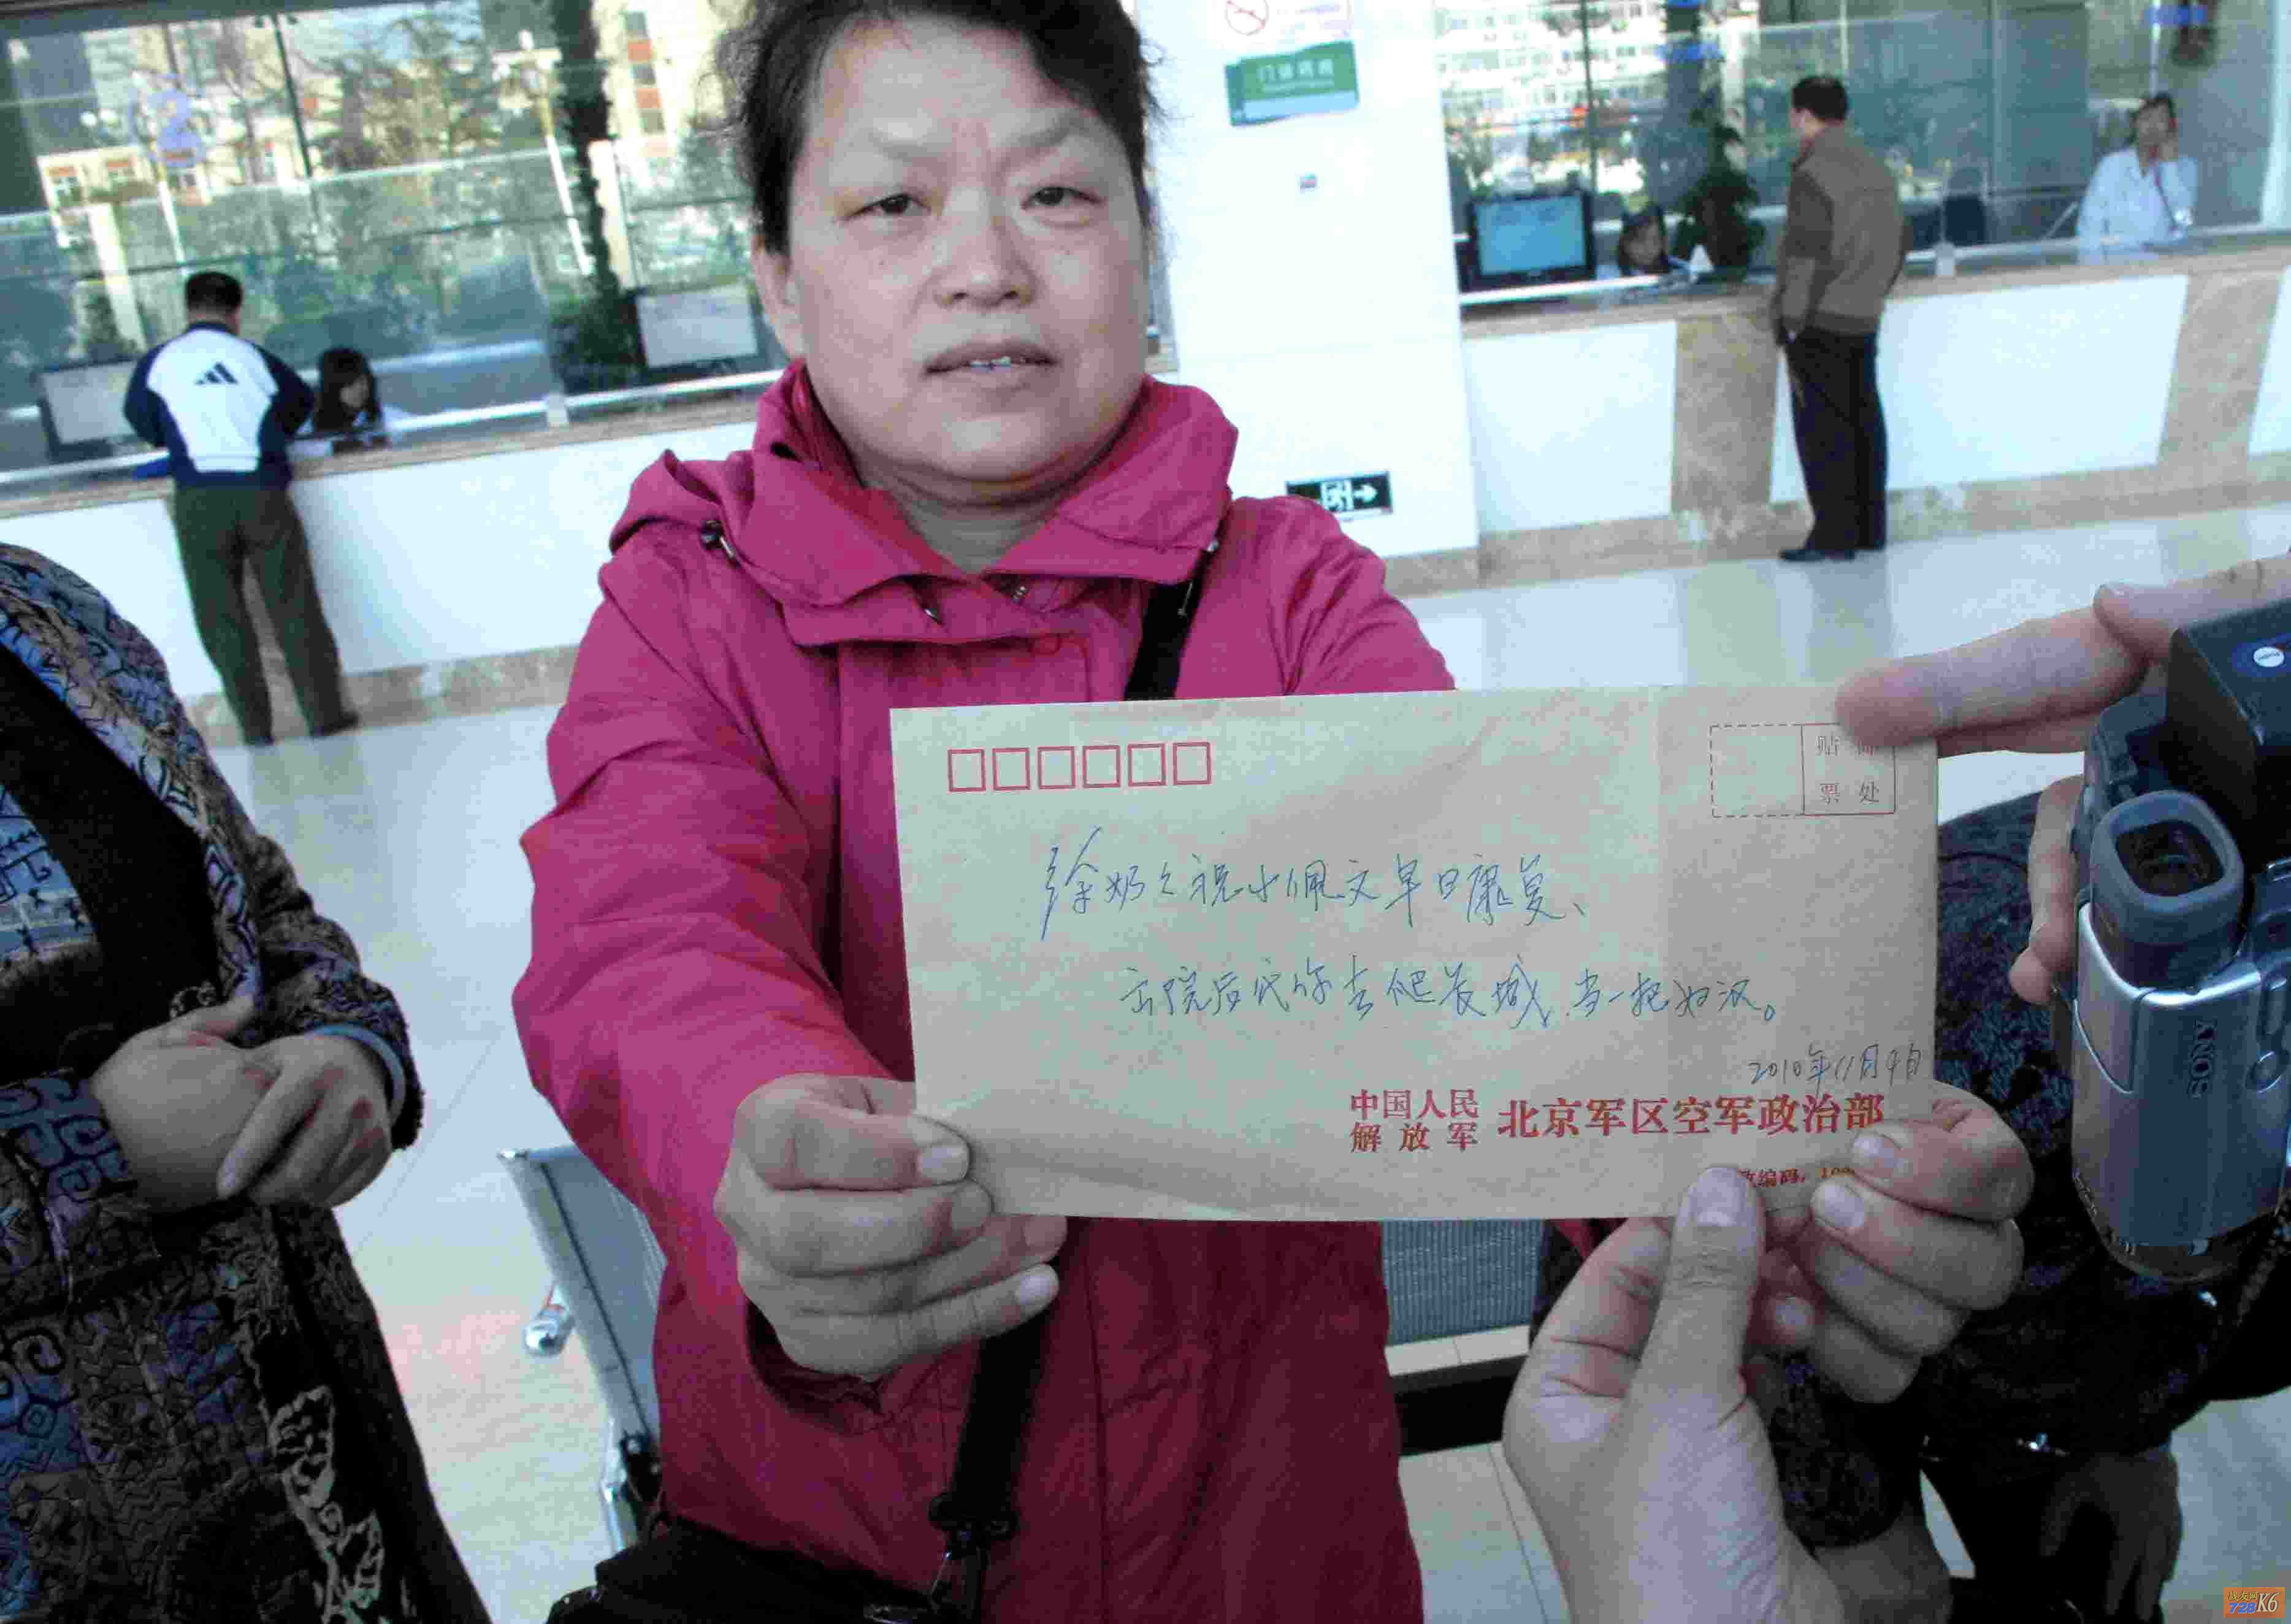 贴邮
票处
徐奶々祝小佩文早日康复、
出院后代你去爬长城,当一把好汉。
2010年11月4日
中国人民
解放军
北京军区空军政治部
政编码:100
SONY
728K6
2